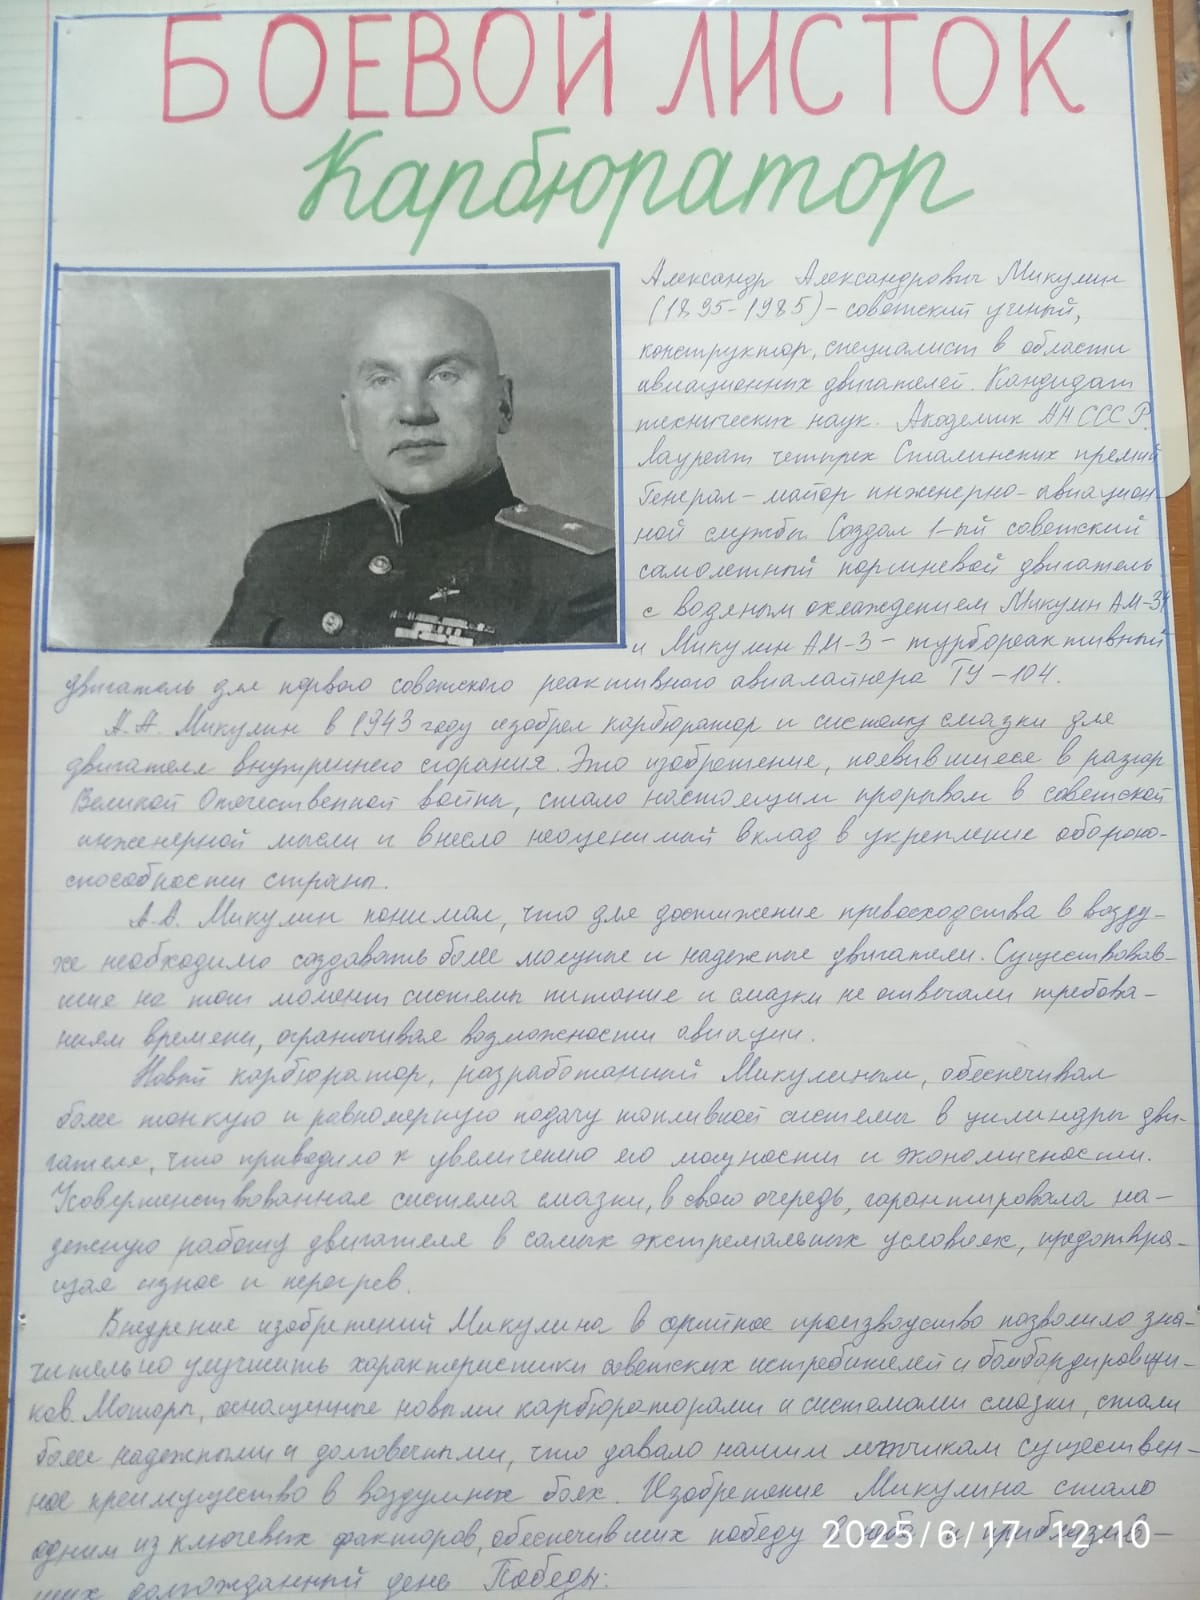 БОЕВОЙ ЛИСТОК
Карбюратор
Александр Александрович Микулин
(1895-1985) - советский ученый,
конструктор, специалист в области
авиационных двигателей. Кандидат
технических наук. Академик АН СССР.
Лауреат четырех Сталинских премий
Генерал-майор инженерно-авиацион-
ной службы. Создал 1-ый советский
самолетный поршневой двигатель
с водяным охлаждением Микулин АМ-34
и Микулин АМ-3 - турбореактивный
двигатель для первого советского реактивного авиалайнера ТУ-104.
А.А. Микулин в 1943 году изобрел карбюратор и систему смазки для
двигателя внутреннего сгорания. Это изобретение, появившееся в разгар
Великой Отечественной войны, стало настоящим прорывом в советской
инженерной мысли и внесло неоценимый вклад в укрепление обороно-
способности страны.
А.А. Микулин понимал, что для достижения превосходства в возду-
хе необходимо создавать более мощные и надежные двигатели. Существовав-
шие на тот момент системы питания и смазки не отвечали требова-
ниям времени, ограничивая возможности авиации.
Новый карбюратор, разработанный Микулиным, обеспечивал
более тонкую и равномерную подачу топливной системы в цилиндры дви-
гателя, что приводило к увеличению его мощности и экономичности.
Усовершенствованная система смазки, в свою очередь, гарантировала на-
дежную работу двигателя в самых экстремальных условиях, предотвра-
щая износ и перегрев.
Внедрение изобретений Микулина в серийное производство позволило зна-
чительно улучшить характеристики советских истребителей и бомбардировщи-
ков. Моторы, оснащенные новыми карбюраторами и системами смазки, стали
более надежными и долговечными, что давало нашим летчикам существен-
ное преимущество в воздушных боях. Изобретение Микулина стало
одним из ключевых факторов, обеспечивших победу в небе и приблизив-
ших долгожданный день Победы.
2025/6/17 12:10